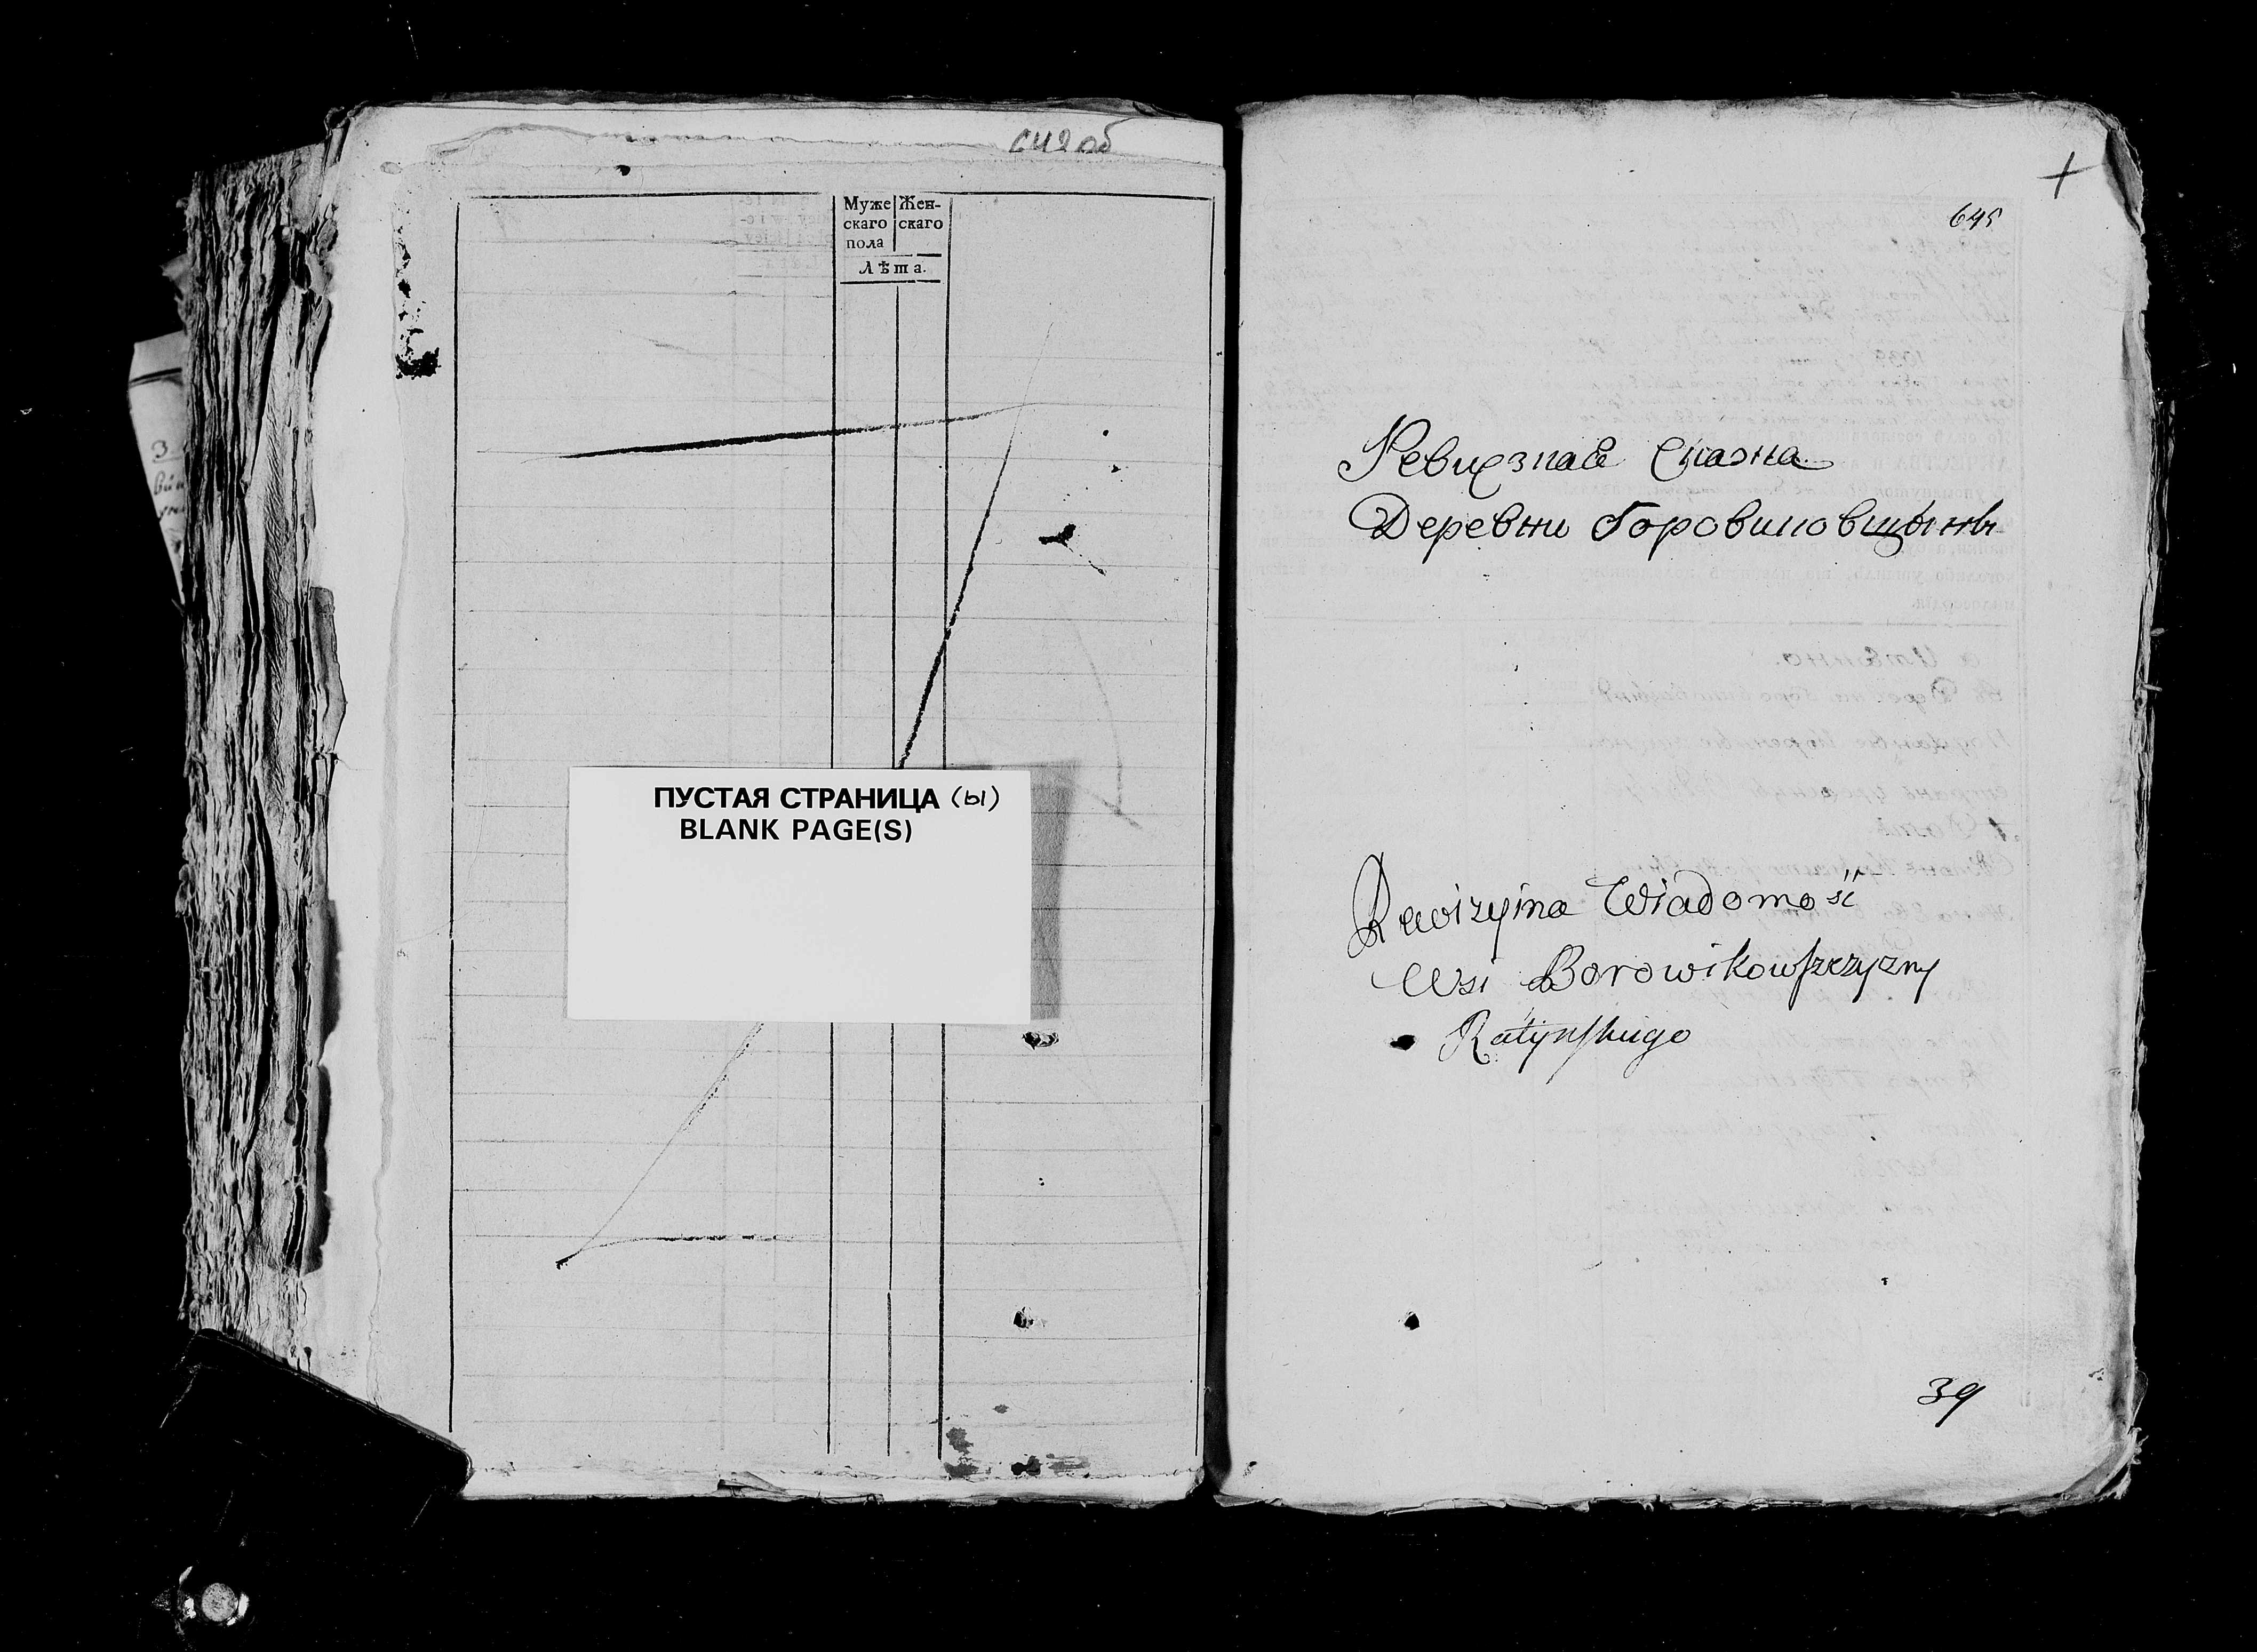 Муже Жен-
скаго скаго
пола
Лѣта.
ПУСТАЯ СТРАНИЦА (ы)
BLANK PAGE(S)
645
Ревизная Сказка
Деревни Боровиковщизны
Rewizyina Wiadomość
Wsi Borowikowszczyzny
Ratyńskiego
39